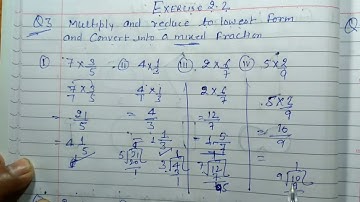 Exercise 2.2
Q3 Multiply and reduce to lowest form
and Convert into a mixed fraction
(i) 7 × 3/5 (ii) 4 × 1/3 (iii) 2 × 6/7 (iv) 5 × 2/9
7/1 × 3/5 4/1 × 1/3 2 × 6/7 5 × 2/9
= 21/5 = 4/3 = 12/7 = 10/9
= 4 1/5 = 1 1/3 = 1 5/7 =